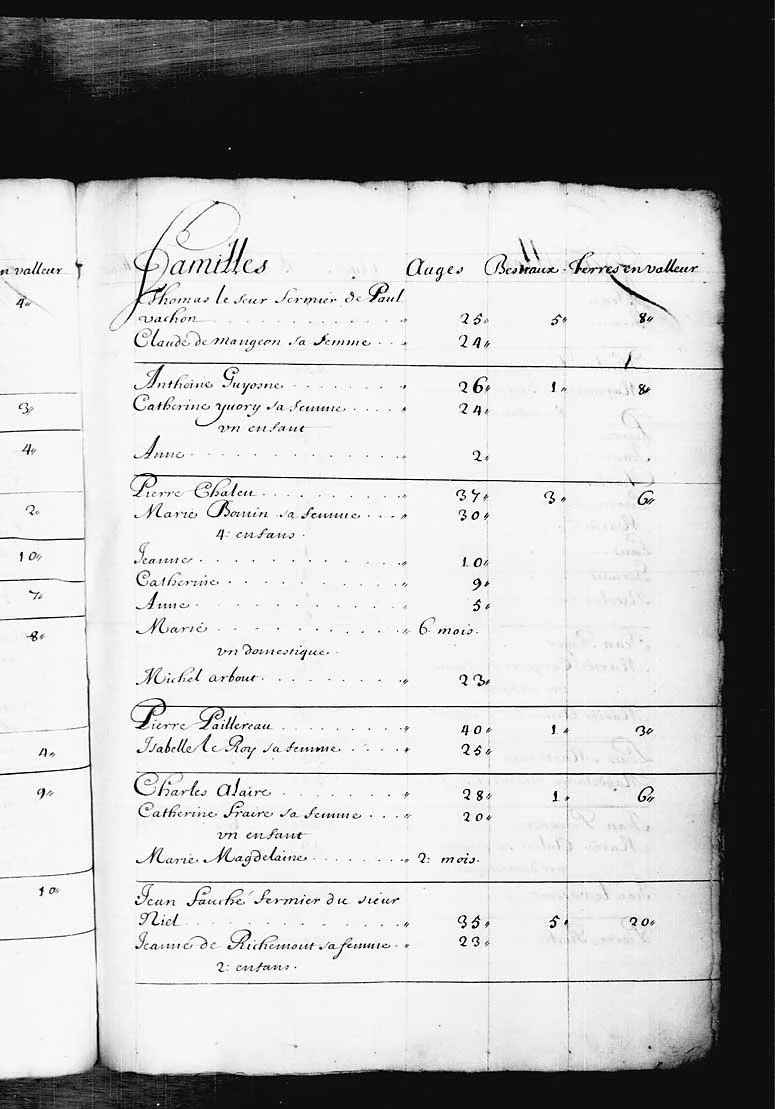 n valleur
4„
3„
4„
2„
10„
7„
8„
4„
9„
10„
Familles Aages Bestiaux. Terres en valleur
Thomas le seur fermier de Paul
vachon . . . „ 25„ 5„ 8„
Claude de mangeon sa femme . . „ 24„
Anthoine Guyosne . . . „ 26„ 1„ 8„
Catherine yuory sa femme . . . „ 24„
vn enfant
Anne . . . „ 2„
Pierre Chaleu . . . „ 37„ 3„ 6„
Marie Bonnin sa femme . . . „ 30„
4: enfans.
Jeanne . . . „ 10„
Catherine . . . „ 9„
Anne . . . „ 5„
Marie . . . „ 6 mois.
vn domestique.
Michel arbout . . . „ 23„
Pierre Paillereau . . . „ 40„ 1„ 3„
Isabelle le Roy sa femme . . . „ 25„
Charles Alaire . . . „ 28„ 1„ 6„
Catherine fraire sa femme . . . „ 20„
vn enfant
Marie Magdelaine . . . „ 2: mois.
Jean fauché fermier du sieur
Niel . . . „ 35„ 5„ 20„
Jeanne de Richemont sa femme . „ 23„
2: enfans.